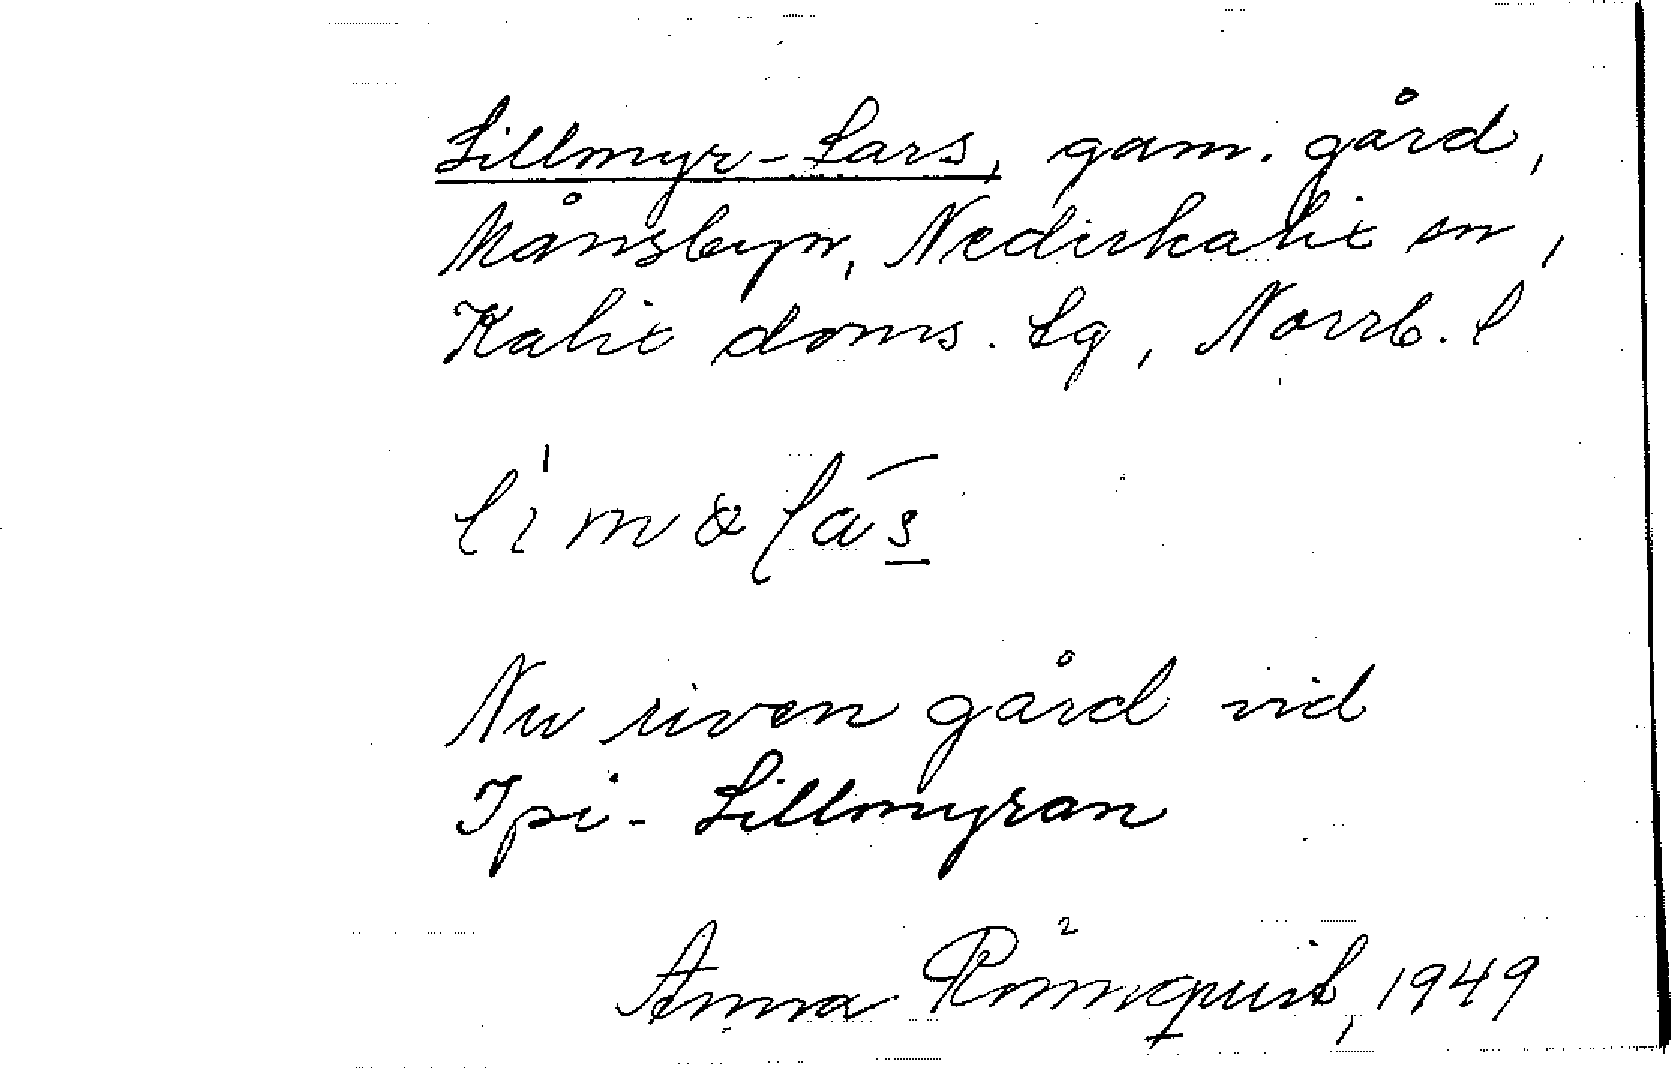 Lillmyr-Lars, gam. gård,
Månsbyn, Nederkalix sn,
Kalix doms. lg, Norrb. l
Nu riven gård vid
Ipi- Lillmyran
Anna Rönnquist, 1949